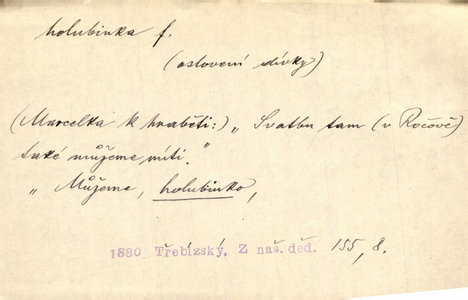 holubinka f.
(oslovení dívky)
(Marcelka k hraběti:) „Svatbu tam (v Ročově)
také můžeme míti."
„Můžeme, holubinko,
1880 Třebízský, Z naš. děd. 155, 8.